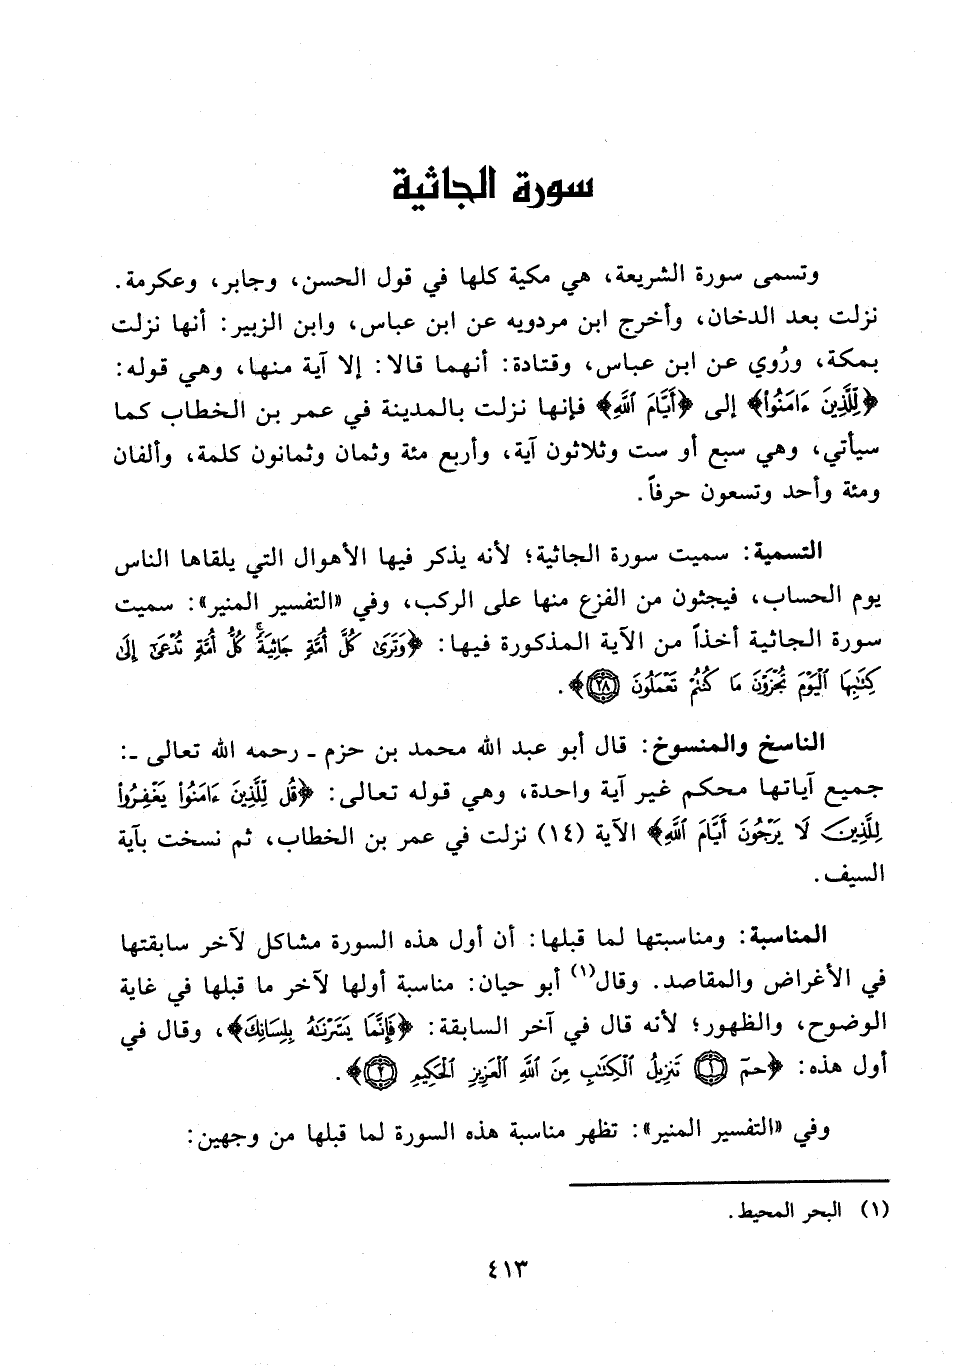 سورة الجاثية
وتسمى سورة الشريعة، هي مكية كلها في قول الحسن، وجابر، وعكرمة.
نزلت بعد الدخان، وأخرج ابن مردويه عن ابن عباس، وابن الزبير: أنها نزلت
بمكة، ورُوي عن ابن عباس، وقتادة: أنهما قالا: إلا آية منها، وهي قوله:
﴿لِّلَّذِينَ ءَامَنُوا۟﴾ إلى ﴿أَيَّامَ ٱللَّهِ﴾ فإنها نزلت بالمدينة في عمر بن الخطاب كما
سيأتي، وهي سبع أو ست وثلاثون آية، وأربع مئة وثمان وثمانون كلمة، وألفان
ومئة وأحد وتسعون حرفاً.
التسمية: سميت سورة الجاثية؛ لأنه يذكر فيها الأهوال التي يلقاها الناس
يوم الحساب، فيجثون من الفزع منها على الركب، وفي «التفسير المنير»: سميت
سورة الجاثية أخذاً من الآية المذكورة فيها: ﴿وَتَرَىٰ كُلَّ أُمَّةٍ جَاثِيَةً ۚ كُلُّ أُمَّةٍ تُدْعَىٰٓ إِلَىٰ
كِتَٰبِهَا ٱلْيَوْمَ تُجْزَوْنَ مَا كُنتُمْ تَعْمَلُونَ ٢٨﴾.
الناسخ والمنسوخ: قال أبو عبد الله محمد بن حزم ـ رحمه الله تعالى ـ:
جميع آياتها محكم غير آية واحدة، وهي قوله تعالى: ﴿قُل لِّلَّذِينَ ءَامَنُوا۟ يَغْفِرُوا۟
لِلَّذِينَ لَا يَرْجُونَ أَيَّامَ ٱللَّهِ﴾ الآية (١٤) نزلت في عمر بن الخطاب، ثم نسخت بآية
السيف.
المناسبة: ومناسبتها لما قبلها: أن أول هذه السورة مشاكل لآخر سابقتها
في الأغراض والمقاصد. وقال(١) أبو حيان: مناسبة أولها لآخر ما قبلها في غاية
الوضوح، والظهور؛ لأنه قال في آخر السابقة: ﴿فَإِنَّمَا يَسَّرْنَٰهُ بِلِسَانِكَ﴾، وقال في
أول هذه: ﴿حمٓ ١ تَنزِيلُ ٱلْكِتَٰبِ مِنَ ٱللَّهِ ٱلْعَزِيزِ ٱلْحَكِيمِ ٢﴾.
وفي «التفسير المنير»: تظهر مناسبة هذه السورة لما قبلها من وجهين:
(١) البحر المحيط.
٤١٣